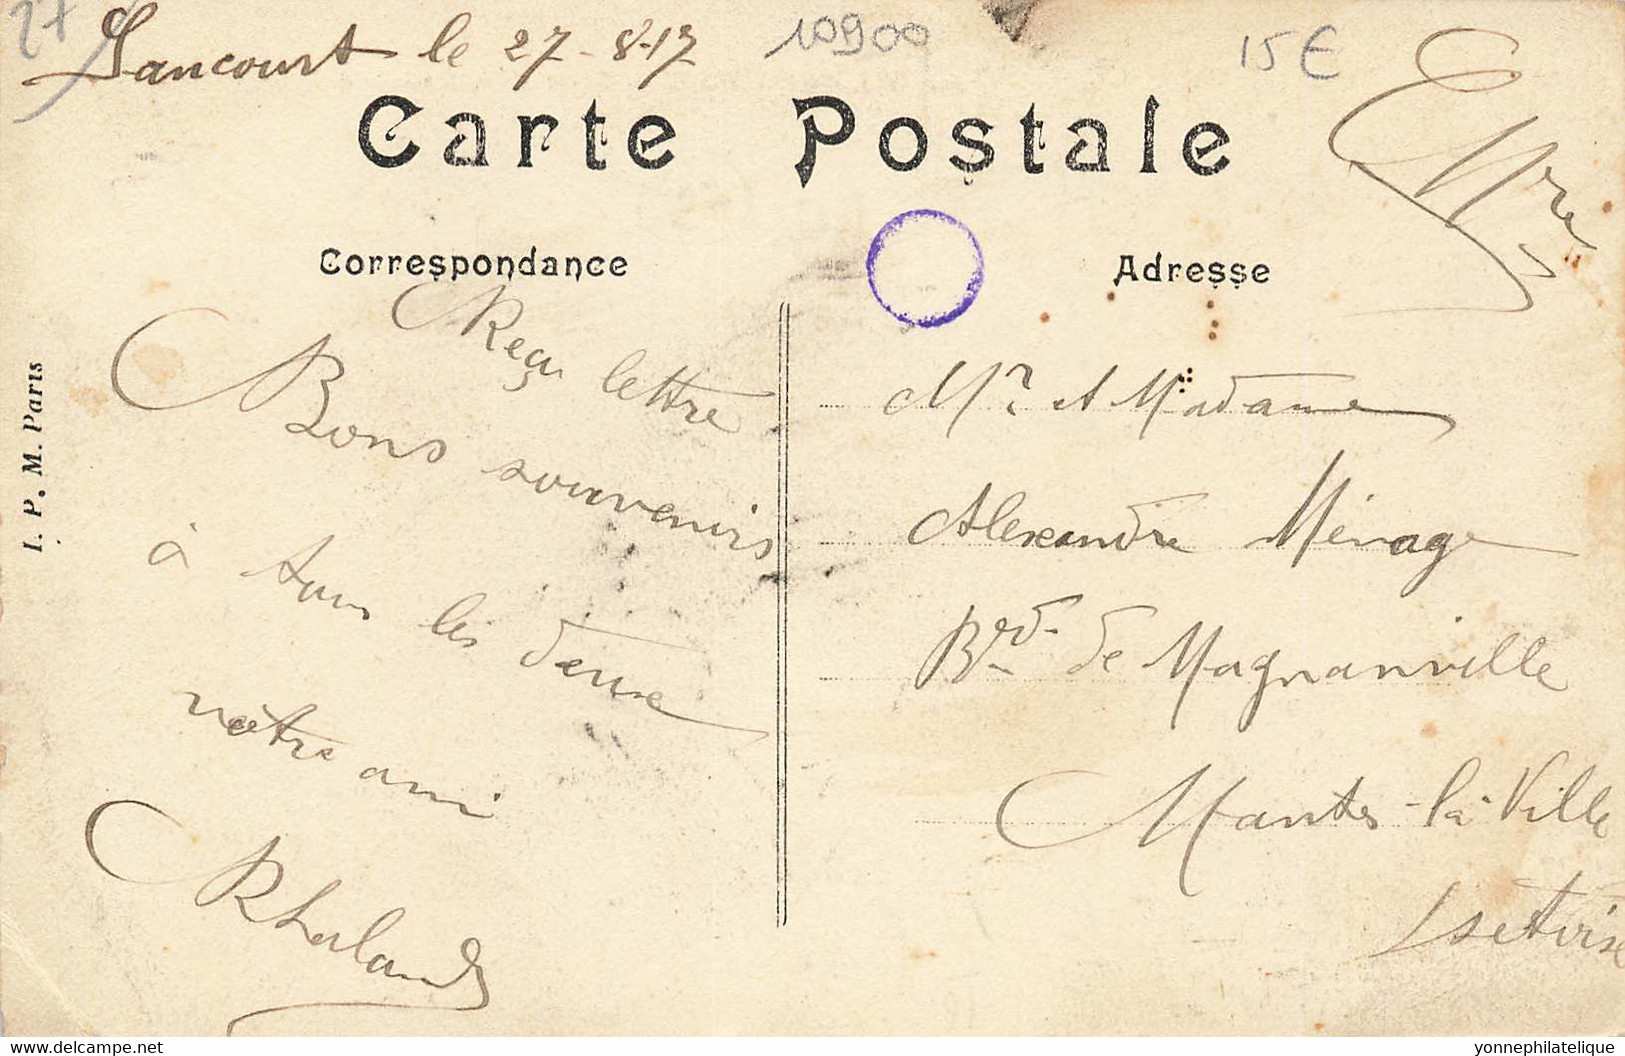 27
Sancourt le 27-8-17
10900
15€
Carte Postale
Correspondance
Adresse
I. P. M. Paris
Reçu lettre
Bons souvenirs
à tous les deux
nôtre ami
Mr et Madame
Alexandre Ménage
Brd. de Magnanville
Mantes-la-Ville
Set Oise
yonnephilatelique
www.delcampe.net